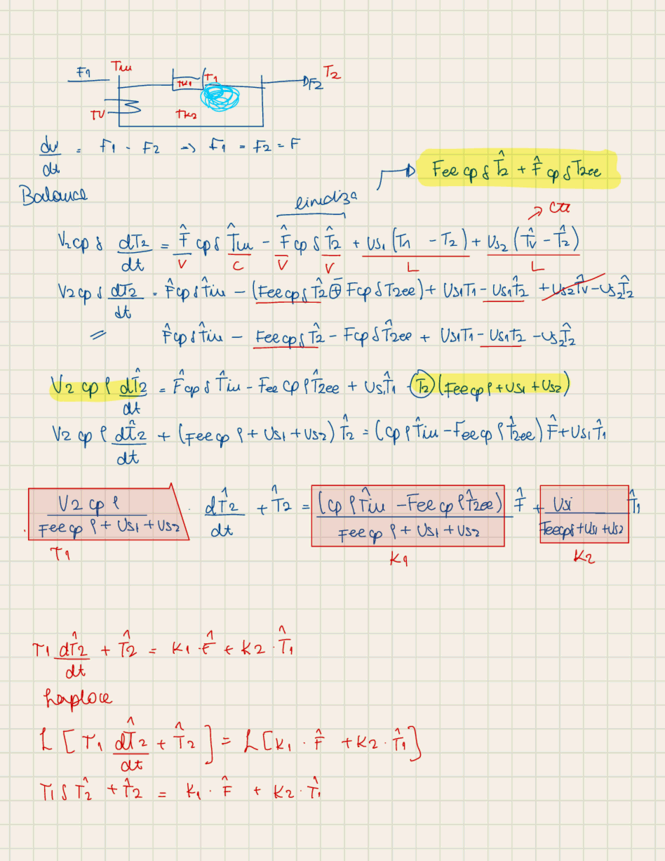 F1 Tin TM1 T1 F2 T2
TV TM2
dv/dt = F1 - F2 → F1 = F2 = F
Feecpδ T̂2 + F̂ cpδ T2ee
Balance
V2cpδ dT2/dt = F̂ cpδ T̂in - F̂ cpδ T̂2 + Us1 (T1 - T2) + Us2 (T̂v - T̂2)
V C V V L L
V2cpδ dT2/dt = F̂cpδT̂in - (Feecpδ T̂2 ⊕ FcpδT2ee) + Us1T1 - Us1T̂2 + Us2T̂v - Us2T̂2
= F̂cpδT̂in - Feecpδ T̂2 - FcpδT2ee + Us1T1 - Us1T2 - Us2T̂2
V2 cp ρ dT̂2/dt = F̂cpδ T̂in - Feecpρ T̂2ee + Us1T̂1 - T2 (Feecpρ + Us1 + Us2)
V2 cp ρ dT̂2/dt + (Feecpρ + Us1 + Us2) T̂2 = (cpρT̂in - Feecpρ T̂2ee) F̂ + Us1T̂1
V2 cpρ / Feecpρ + Us1 + Us2 · dT̂2/dt + T̂2 = (cpρT̂in - Feecpρ T̂2ee) / Feecpρ + Us1 + Us2 F̂ + Us1 / Feecpρ + Us1 + Us2 T̂1
τ1 K1 K2
τ1 dT̂2/dt + T̂2 = K1 · F̂ + K2 · T̂1
Laplace
L [ τ1 dT̂2/dt + T̂2 ] = L [ K1 · F̂ + K2 · T̂1 ]
τ1 S T̂2 + T̂2 = K1 · F̂ + K2 · T̂1